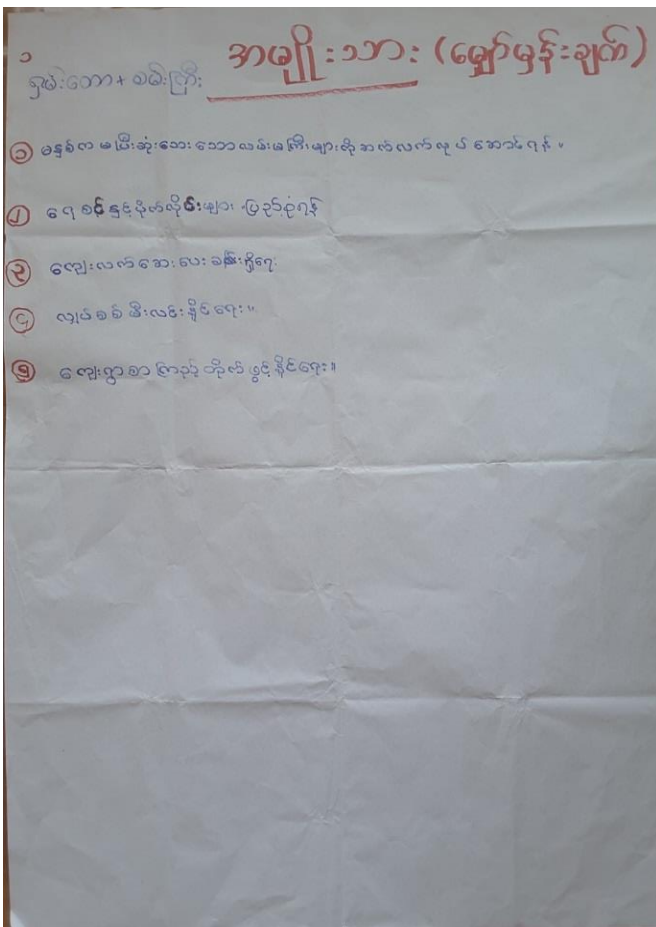 ၁
အမျိုးသား (မျှော်မှန်းချက်)
ရှမ်းတော + စမ်းကြီး
၁ မနှစ်က မပြီးဆုံးသေးသောလမ်းမကြီးများကိုဆက်လက်လုပ်ဆောင်ရန်။
၂ ရေစင်နှင့်ပိုက်လိုင်းများ ပြည့်စုံရန်
၃ ကျေးလက်ဆေးပေးခန်းရှိရေး
၄ လျှပ်စစ်မီးလင်းနိုင်ရေး။
၅ ကျေးရွာစာကြည့်တိုက်ဖွင့်နိုင်ရေး။